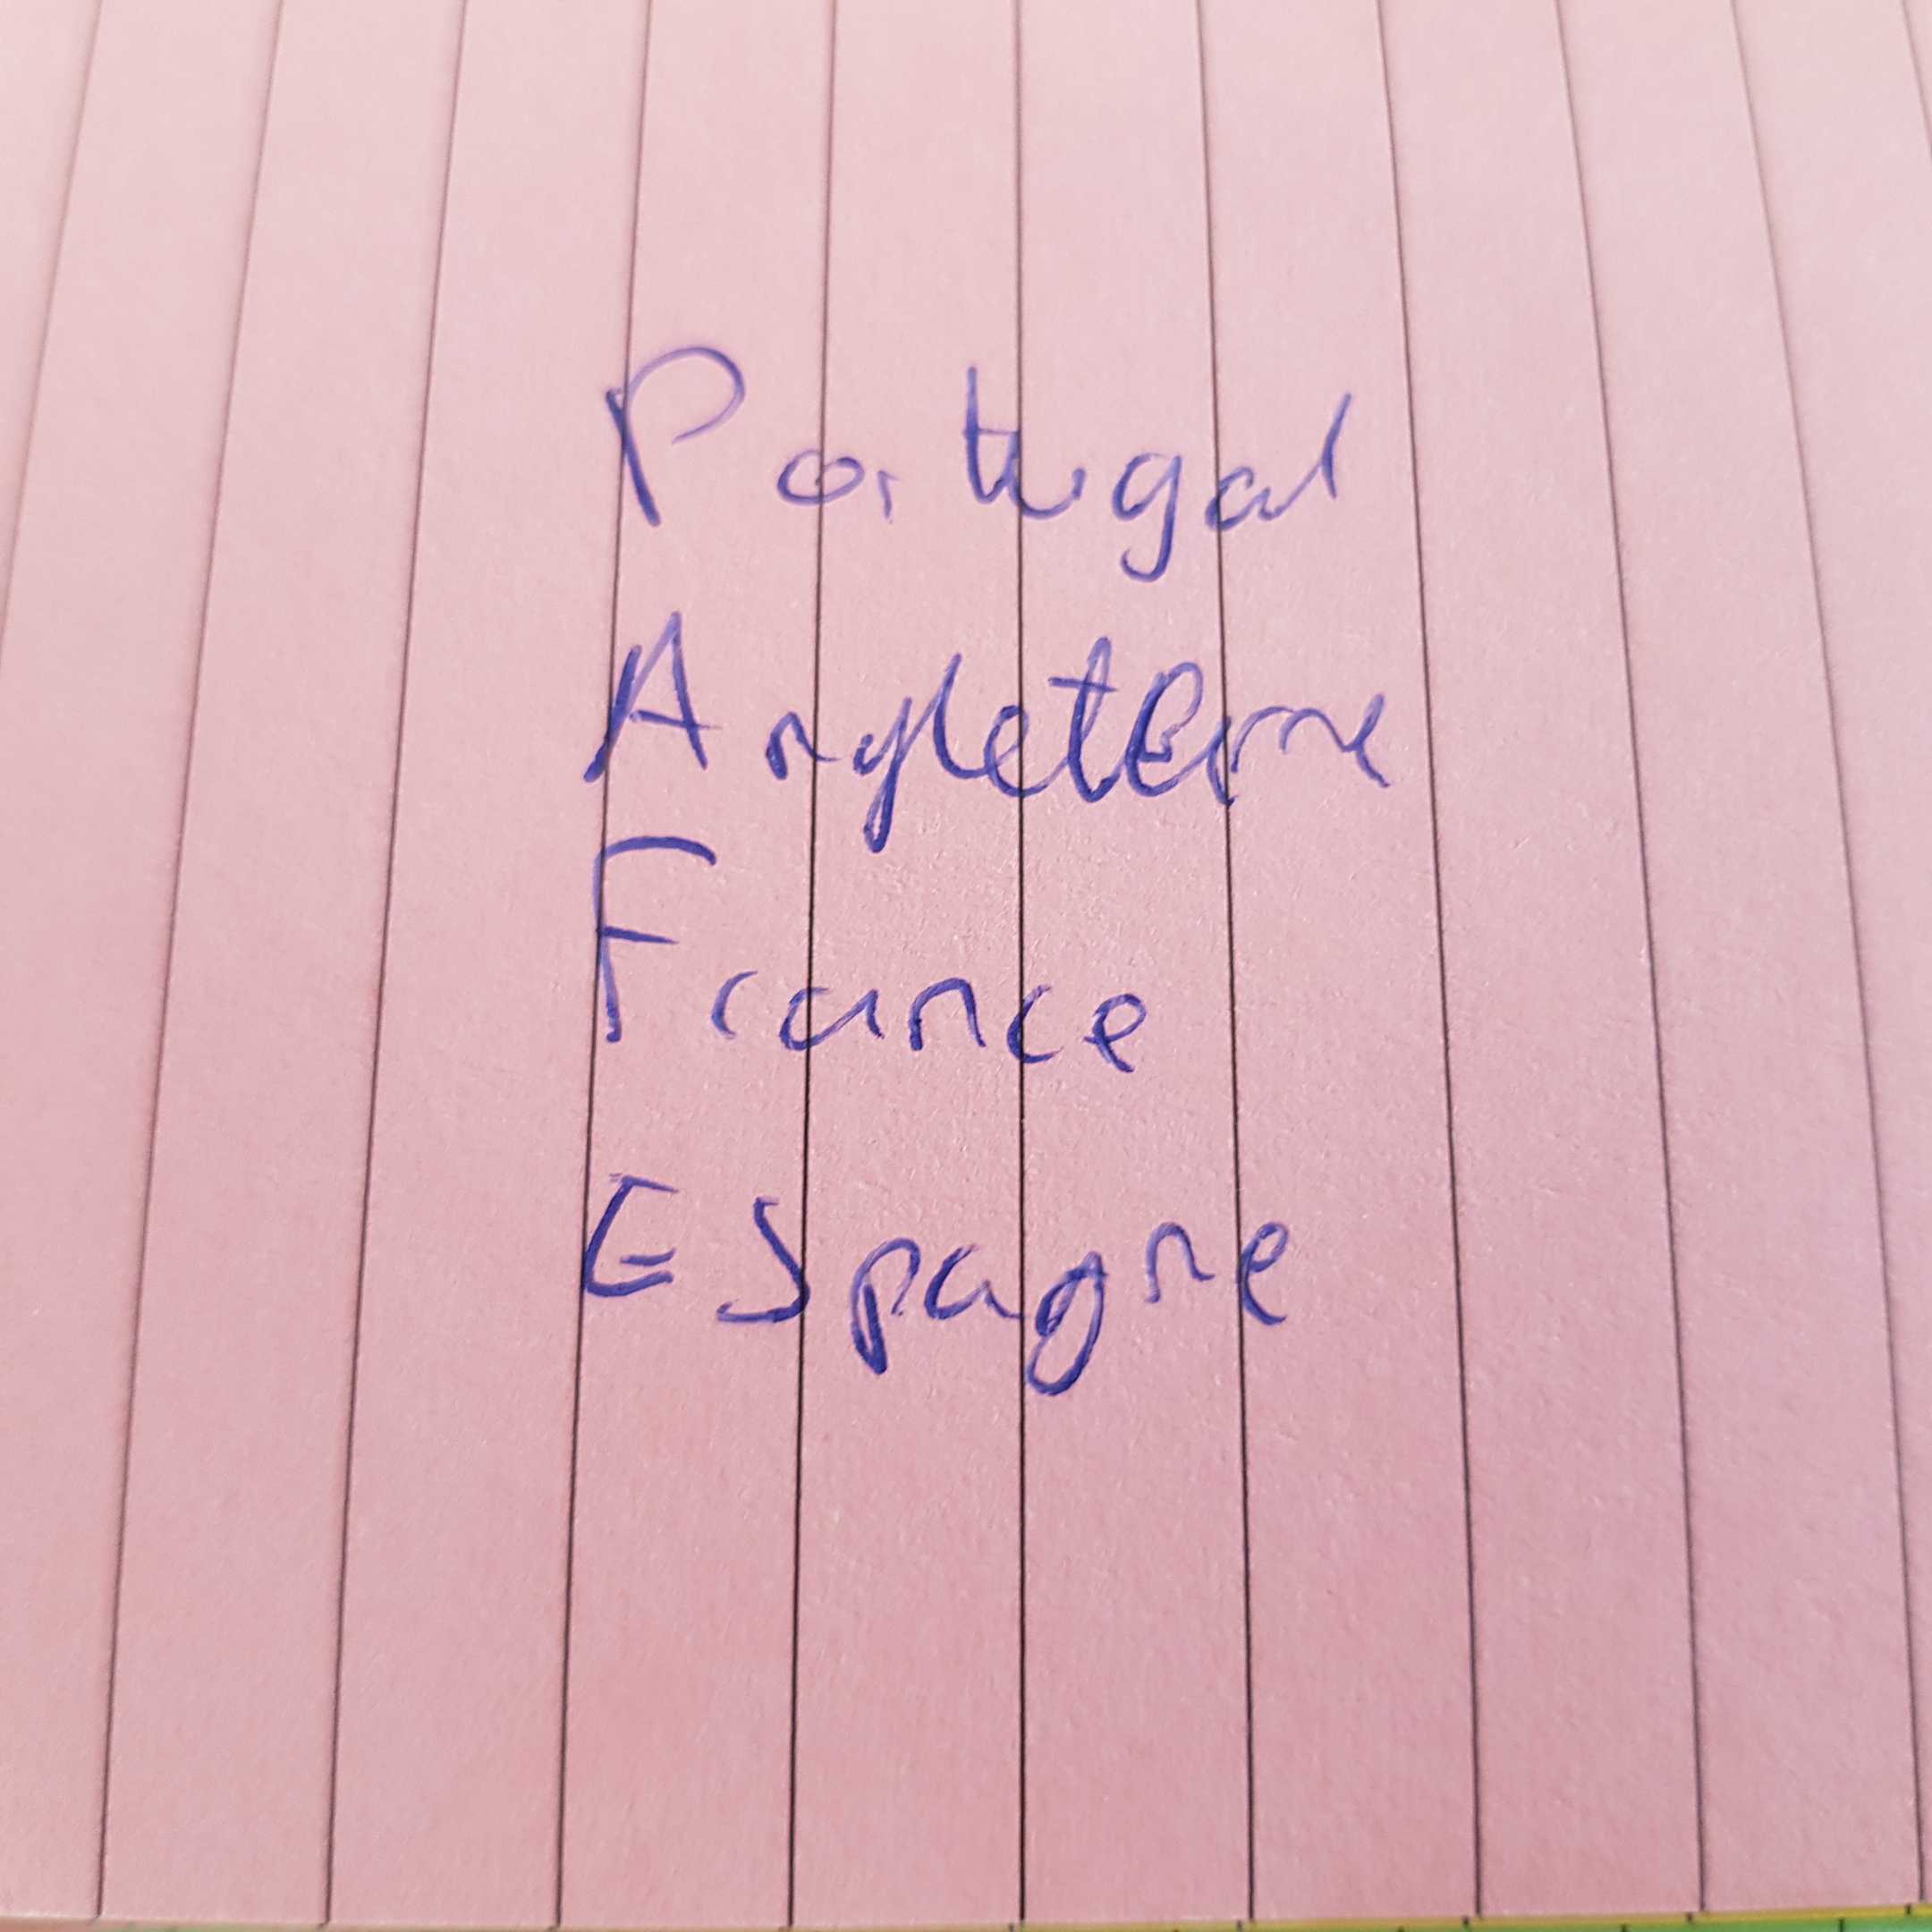 Portugal
Angleterre
France
Espagne